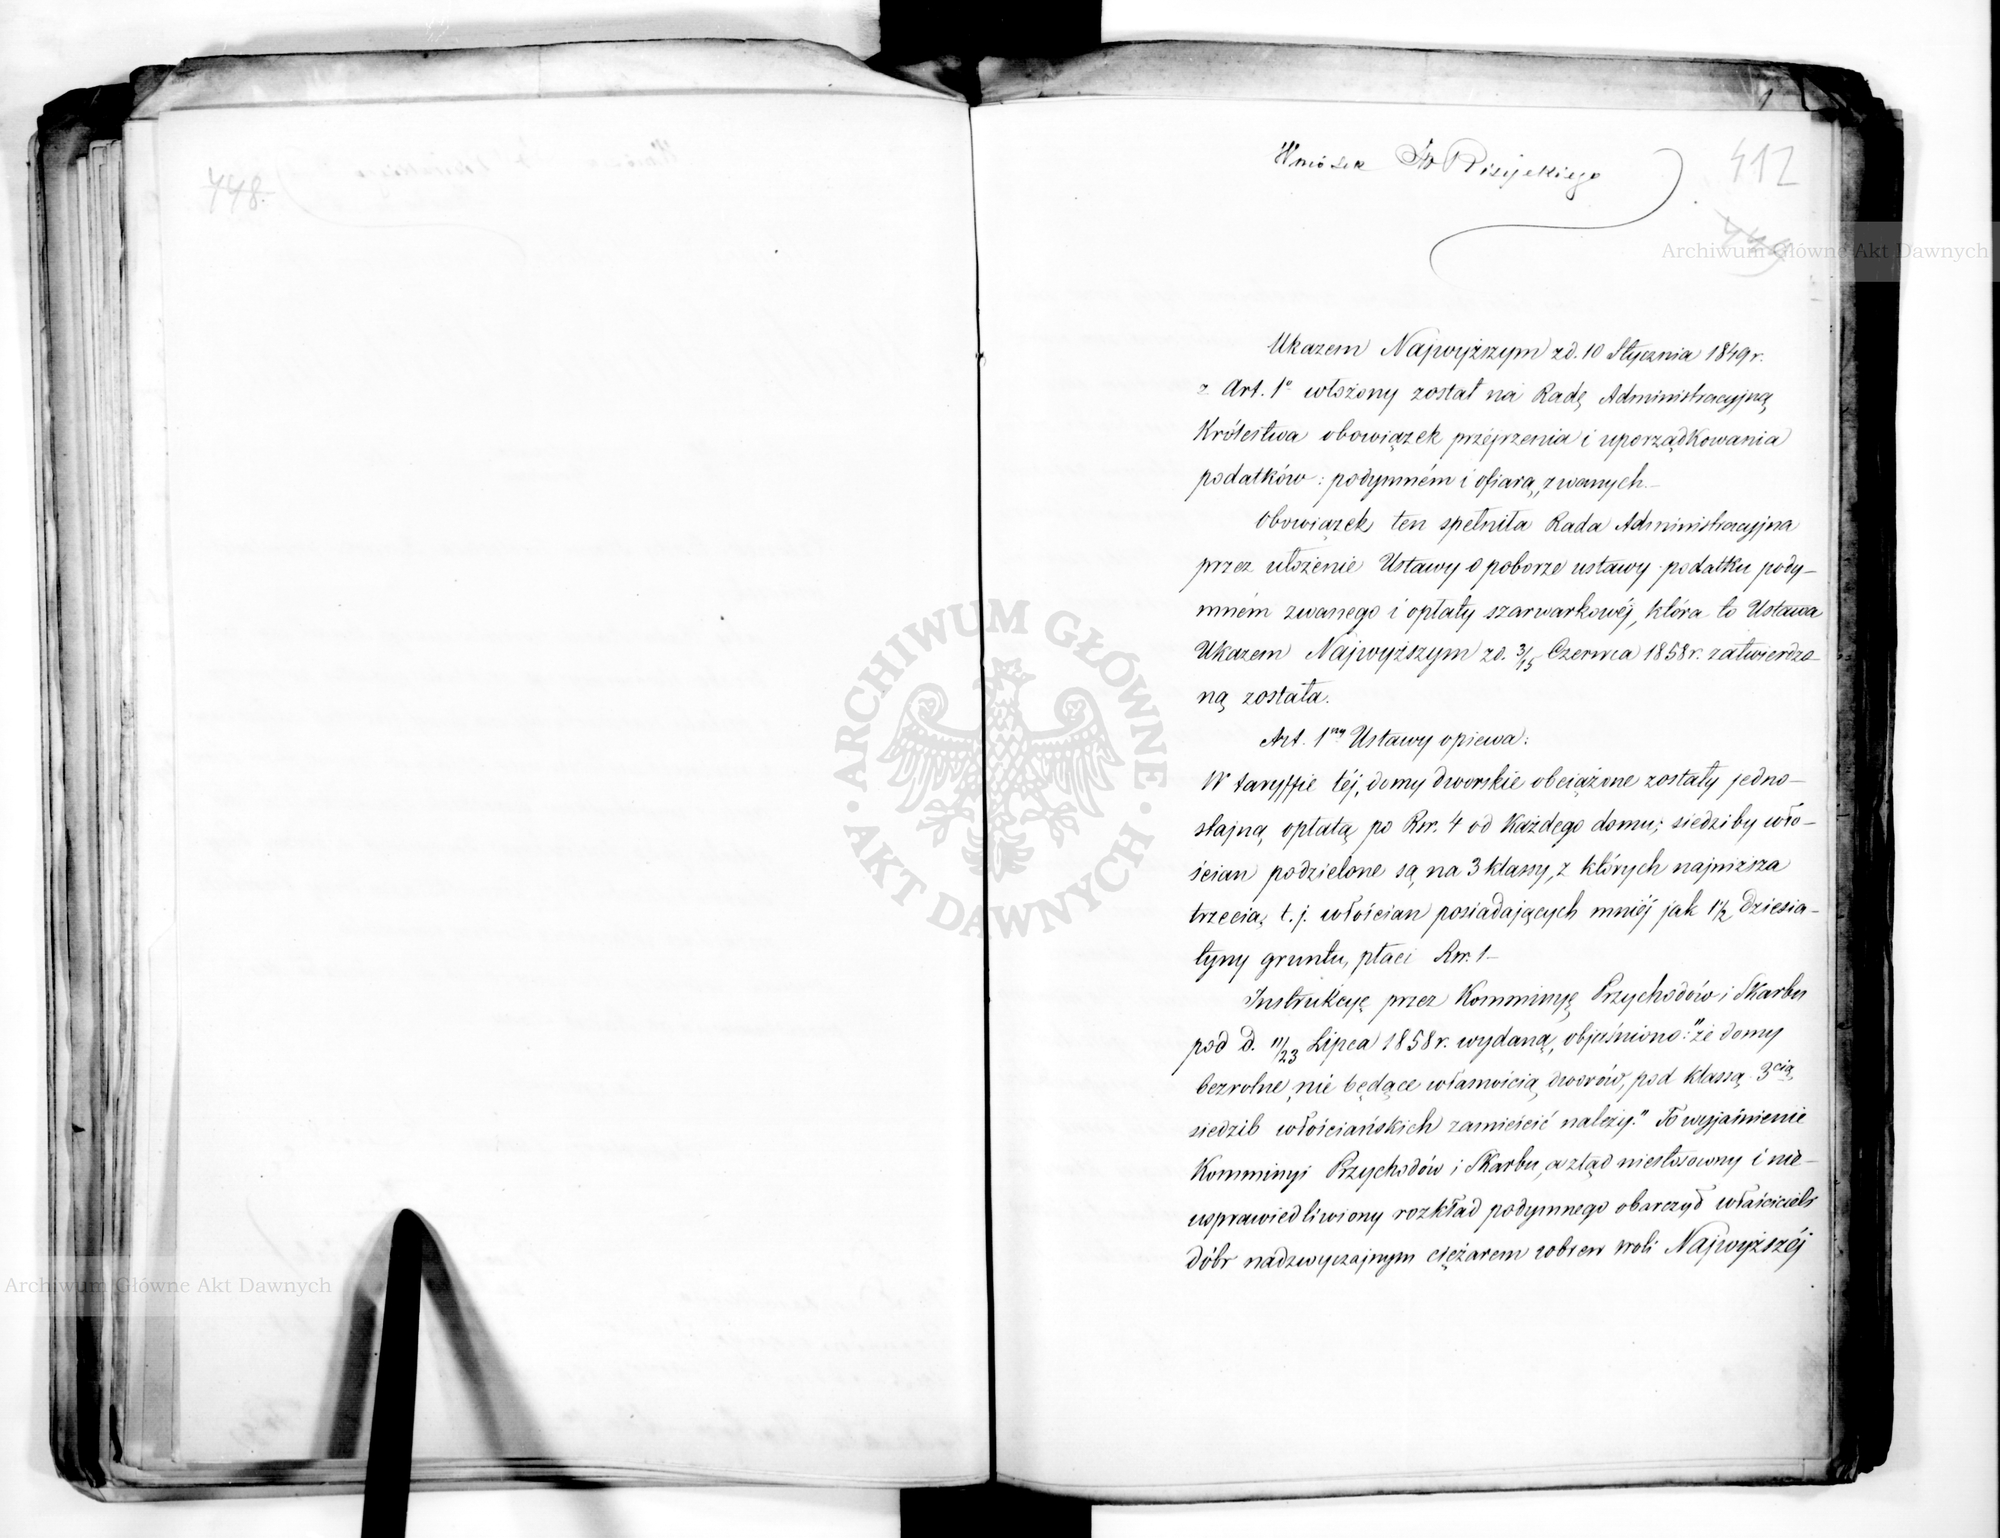 448.
1
Wniosek
412
449
Ukazem Najwyższym z d. 10 Stycznia 1849 r.
z Art. 1o włożony został na Radę Administracyjną
Królestwa obowiązek przejrzenia i uporządkowania
podatków: podymném i ofiarą zwanych.—
Obowiązek ten spełniła Rada Administracyjna
przez ułożenie Ustawy o poborze ustawy podatku pody-
mném zwanego i opłaty szarwarkowéj, która to Ustawa
Ukazem Najwyższym z d. 3/15 Czerwca 1858 r. zatwierdzo-
ną została.
Art. 1ny Ustawy opiewa:
W taryffie téj, domy dworskie obciążone zostały jedno-
stajną opłatą po Rsr. 4 od każdego domu; siedziby wło-
ścian podzielone są na 3 klassy, z których najniższa
trzecia, t.j. włościan posiadających mniéj jak 1½ dziesia-
tyny gruntu, płaci Rsr. 1—
Instrukcyę przez Kommissyę Przychodów i Skarbu
pod d. 11/23 Lipca 1858 r. wydaną, objaśniono: "że domy
bezrolne, nie będące własnością dworów, pod klassą 3cią
siedzib włościańskich zamieścić należy." To wyjaśnienie
Kommissyi Przychodów i Skarbu, a ztąd niestosowny i nie-
usprawiedliwiony rozkład podymnego obarczył właścicieli
dóbr nadzwyczajnym ciężarem wbrew woli Najwyższéj
ARCHIWUM GŁÓWNE AKT DAWNYCH
Archiwum Główne Akt Dawnych
Archiwum Główne Akt Dawnych